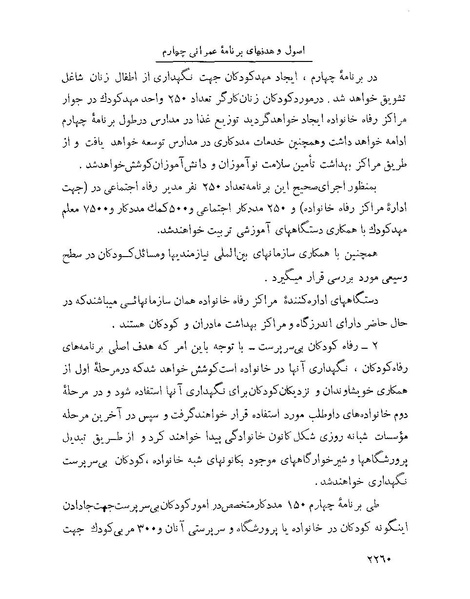 اصول و هدفهای برنامهٔ عمرانی چهارم
در برنامهٔ چهارم ، ایجاد مهدکودکان جهت نگهداری از اطفال زنان شاغل
تشویق خواهد شد . درموردکودکان زنان‌کارگر تعداد ۲۵۰ واحد مهدکودك در جوار
مراکز رفاه خانواده ایجاد خواهدگردید توزیع غذا در مدارس درطول برنامهٔ چهارم
ادامه خواهد داشت وهمچنین خدمات مددکاری در مدارس توسعه خواهد یافت و از
طریق مراکز بهداشت تأمین سلامت نوآموزان و دانش‌آموزان‌کوشش‌خواهدشد .
بمنظور اجرای‌صحیح این برنامه‌تعداد ۲۵۰ نفر مدیر رفاه اجتماعی در (جهت
ادارهٔ مراکز رفاه خانواده) و ۲۵۰ مددکار اجتماعی و۵۰۰کمك مددکار و۷۵۰۰ معلم
مهدکودك با همکاری دستگاههای آموزشی تربیت خواهندشد.
همچنین با همکاری سازمانهای بین‌المللی نیازمندیها ومسائل‌کودکان در سطح
وسیعی مورد بررسی قرار میگیرد .
دستگاههای اداره‌کنندهٔ مراکز رفاه خانواده همان سازمانهائی میباشندکه در
حال حاضر دارای اندرزگاه و مراکز بهداشت مادران و کودکان هستند .
۲ ـ رفاه کودکان بی‌سرپرست ـ با توجه باین امر که هدف اصلی برنامه‌های
رفاه‌کودکان ، نگهداری آنها در خانواده است‌کوشش خواهد شدکه درمرحلهٔ اول از
همکاری خویشاوندان و نزدیکان‌کودکان‌برای نگهداری آنها استفاده شود و در مرحلهٔ
دوم خانواده‌های داوطلب مورد استفاده قرار خواهندگرفت و سپس در آخرین مرحله
مؤسسات شبانه روزی شکل‌کانون خانوادگی پیدا خواهند کرد و از طریق تبدیل
پرورشگاهها و شیرخوارگاههای موجود بکانونهای شبه خانواده ،کودکان بی‌سرپرست
نگهداری خواهندشد .
طی برنامهٔ چهارم ۱۵۰ مددکارمتخصص‌در امورکودکان بی‌سرپرست‌جهت‌جادادن
اینگونه کودکان در خانواده یا پرورشگاه و سرپرستی آنان و۳۰۰ مربی‌کودك جهت
۲۲۶۰